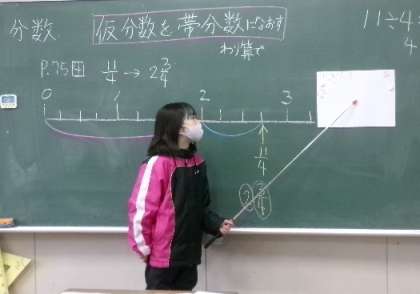 分数
仮分数を帯分数になおす
わり算で
P.75 田 11/4 → 2 3/4
11÷4
4
0 1 2 3
11/4
2 3/4